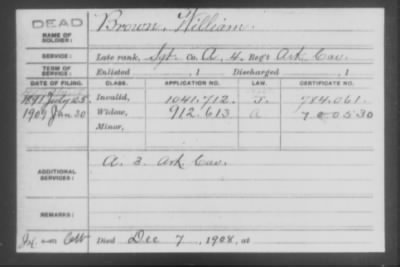 DEAD
NAME OF SOLDIER:
Brown, William.
SERVICE:
Late rank, Sgt. Co. A, 4, Reg't Ark Cav.
TERM OF SERVICE:
Enlisted , 1 Discharged , 1
DATE OF FILING. CLASS. APPLICATION NO. LAW. CERTIFICATE NO.
1891 July 25 Invalid, 1041.712. J. 784.061.
1909 Jan 30 Widow, 912.613. a 700530
Minor,
ADDITIONAL SERVICES:
A. 3. Ark Cav.
REMARKS:
Died Dec 7, 1908, at